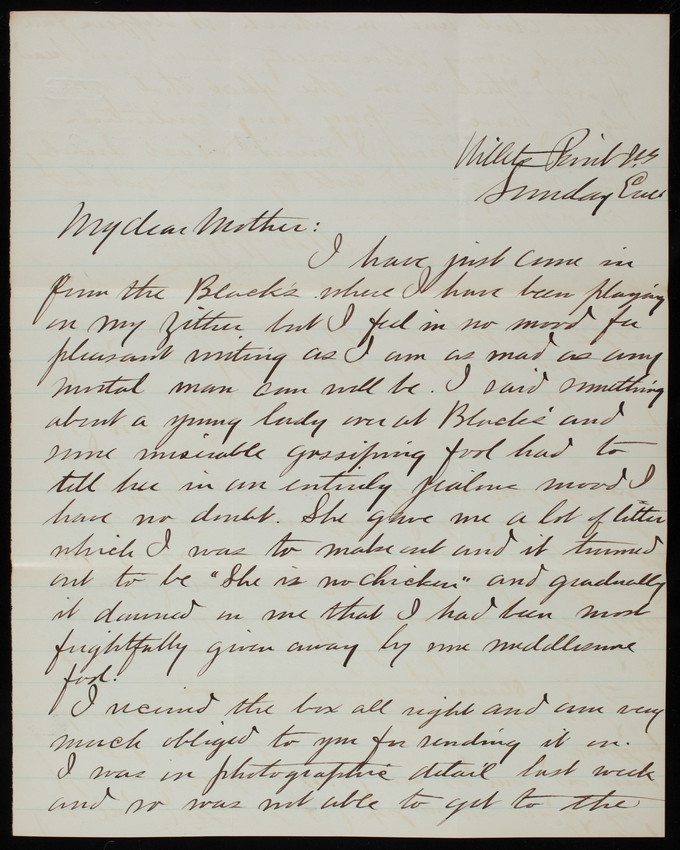 Willets Point N.Y.
Sunday Eve
My dear Mother:
I have just come in
from the Black's where I have been playing
on my zither but I feel in no mood for
pleasant writing as I am as mad as any
mortal man can well be. I said something
about a young lady over at Black's and
some miserable gossiping fool had to
tell her in an entirely jealous mood I
have no doubt. She gave me a lot of letters
which I was to make out and it turned
out to be "She is no chicken" and gradually
it dawned on me that I had been most
frightfully given away by some meddlesome
fool.
I received the box all right and am very
much obliged to you for sending it on.
I was on photographic detail last week
and so was not able to get to the